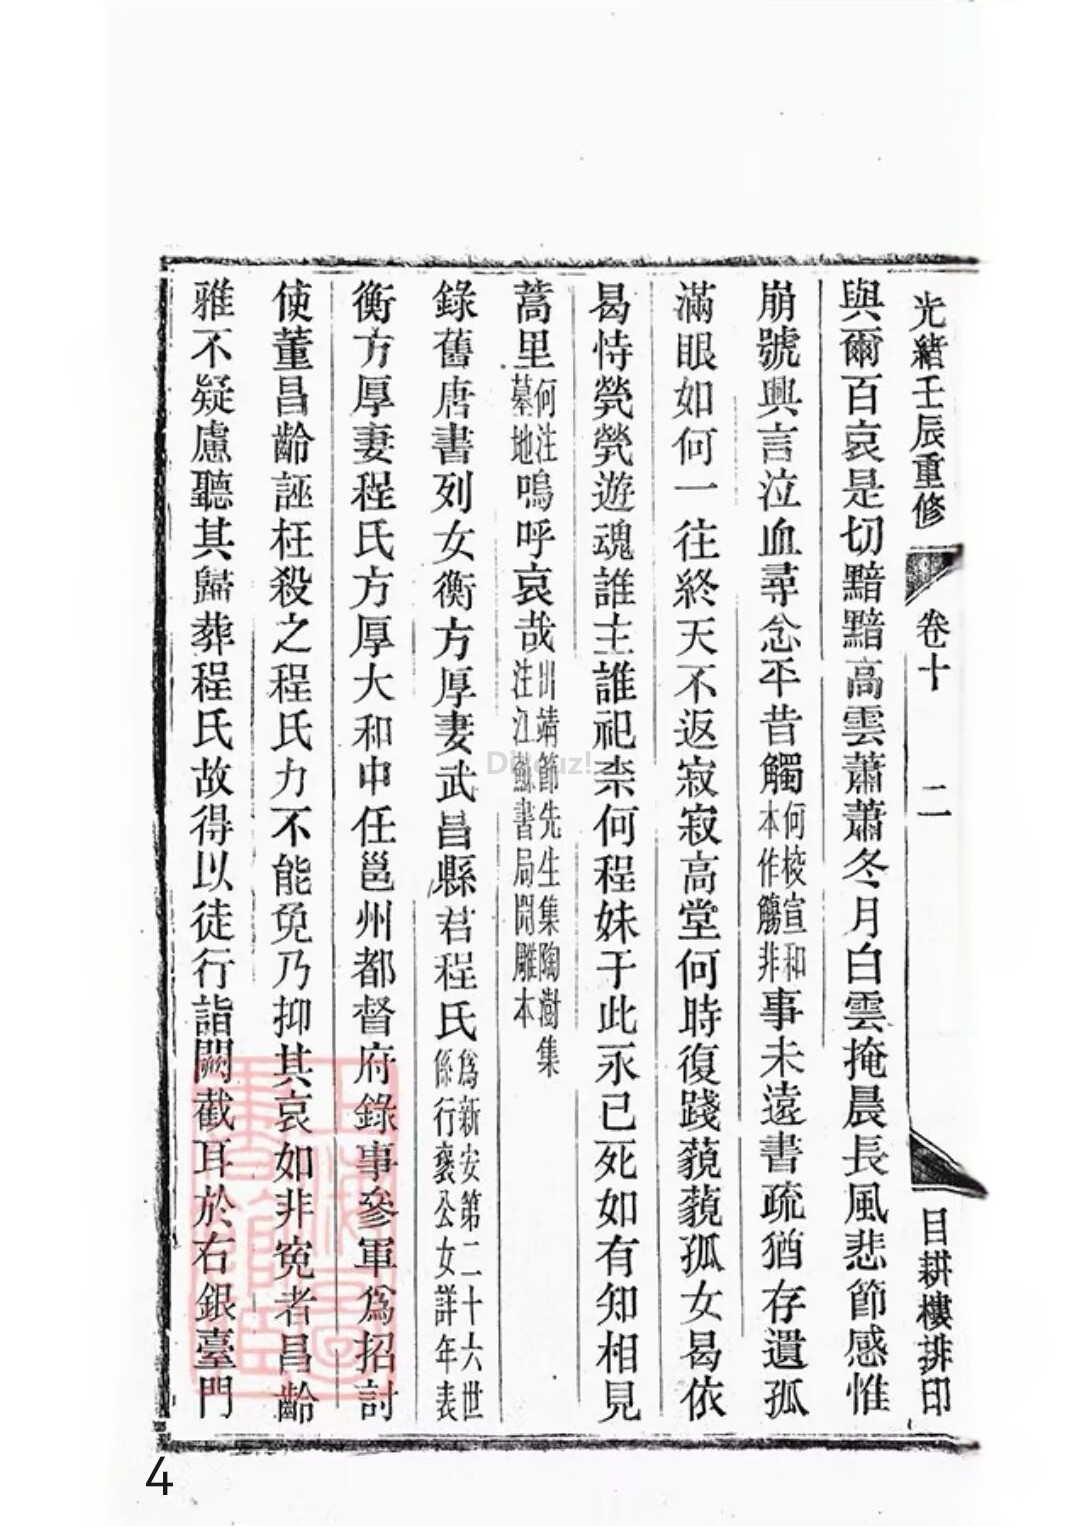 光緒壬辰重修 卷十 二 目耕樓排印
與爾百哀是切黯黯高雲蕭蕭冬月白雲掩晨長風悲節感惟
崩號興言泣血尋念平昔觸何校宣和本作觴非事未遠書疏猶存遺孤
滿眼如何一往終天不返寂寂高堂何時復踐藐藐孤女曷依
曷恃煢煢遊魂誰主誰祀柰何程妹于此永已死如有知相見
蒿里何注墓地嗚呼哀哉出靖節先生集陶澍集注江蘇書局開雕本
錄舊唐書列女衡方厚妻武昌縣君程氏爲新安第二十六世係行褒公女詳年表
衡方厚妻程氏方厚大和中任邕州都督府錄事參軍爲招討
使董昌齡誣枉殺之程氏力不能免乃抑其哀如非寃者昌齡
雅不疑慮聽其歸葬程氏故得以徒行詣闕截耳於右銀臺門
上海圖書館藏
Discuz!
4